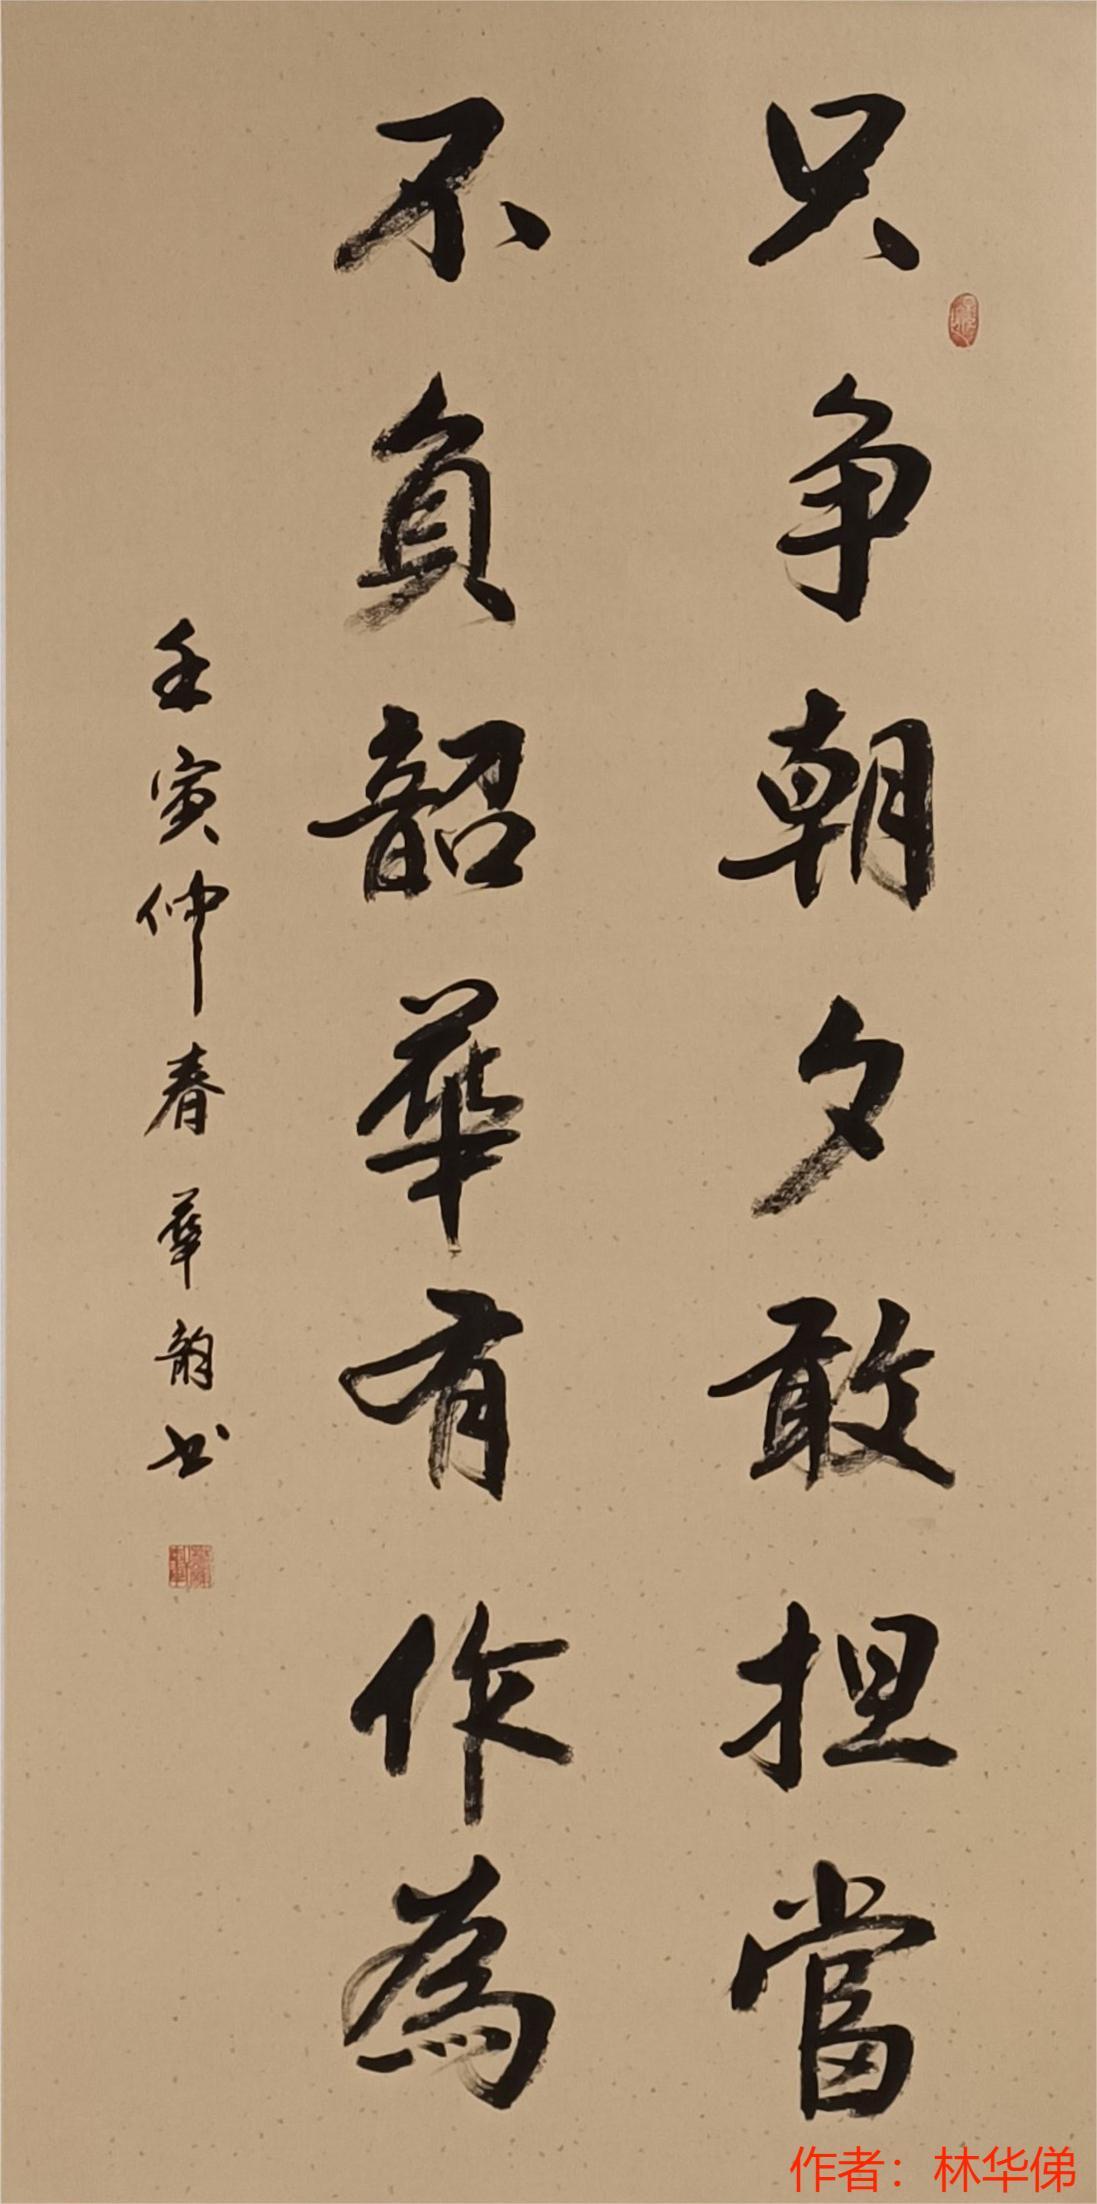 只争朝夕敢担當
不負韶華有作為
壬寅仲春華韵书
作者：林华俤